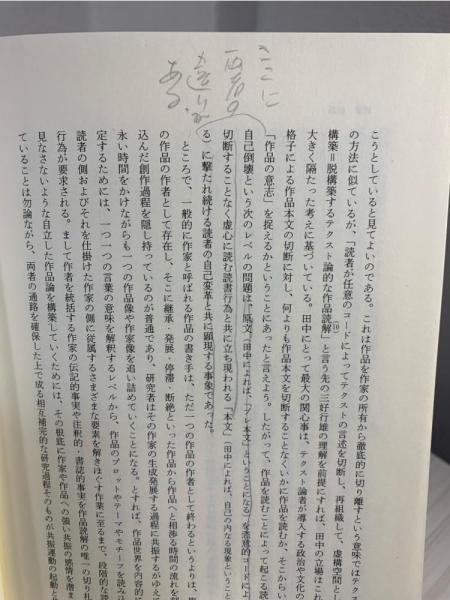 ここに
両者の
違いが
ある。
こうとしていると見てよいのである。これは作品を作家の所有から徹底的に切り離すという意味ではテクス
の方法に似ているが、「読者が任意のコードによってテクストの言述を切断し、再組織して、虚構空間と
構築=脱構築するテクスト論的な作品読解」(10)と言う先の三好行雄の理解を前提にすれば、田中の立場はこれ
大きく隔たった考えに基づいている。田中にとって最大の関心事は、テクスト論者が導入する政治や文化の
格子による作品本文の切断に対し、何よりも作品本文を切断することなくいかに作品を読むか、そこからい
「作品の意志」を捉えるかということにあったと言えよう。したがって、作品を読むことによって起こる読
自己倒壊という次のレベルの問題は「原文」(田中によれば、「プレ本文」ということになる)を恣意的コードによ
切断することなく虚心に読む読書行為と共に立ち現われる「本文」(田中によれば、自己の内なる現象ということ
る)に撃たれ続ける読者の自己変革と共に顕現する事象であった。
ところで、一般的に作家と呼ばれる作品の書き手は、ただ一つの作品の作者として終わるというよりは、
の作品の作者として存在し、そこに継承・発展・停滞・断絶といった作品から作品へと相渉る時間の流れを
込んだ創作過程を隠し持っているのが普通であり、研究者はその作家の生成発展する過程に共振するがゆえ
永い時間をかけながらも一つの作品像や作家像を追い詰めていくことになる。とすれば、作品世界を内容的
定するためには、一つ一つの言葉の意味を解釈するレベルから、作品のプロットやテーマやモチーフを読み
読者の側およびそれを仕掛けた作家の側に従属するさまざまな要素を解きほぐす作業に至るまで、段階的な
行為が要求される。まして作者を統括する作家の伝記的事実や注釈的・書誌的事実を作品読解の唯一の切り
見なさないような自立した作品論を構築していくためには、その根底に作家や作品への強い共振の感情を
ていることは勿論ながら、両者の通路を確保した上で成る相互補完的な研究過程そのものが共振運動の起動と